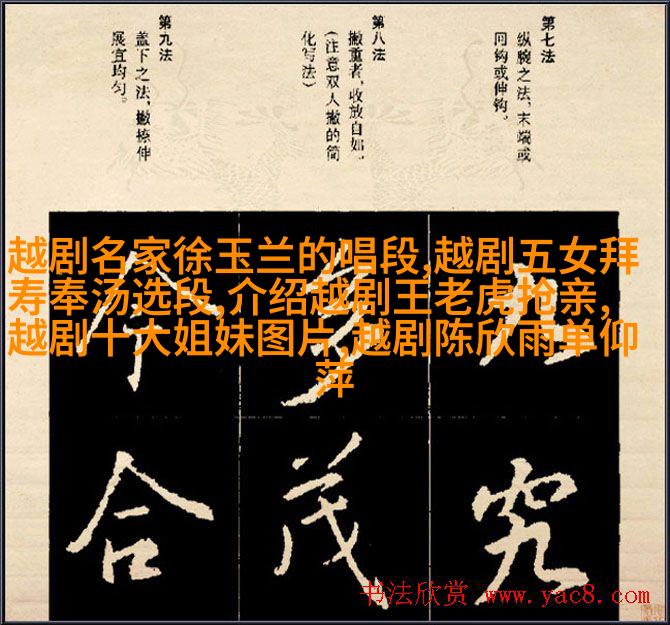 第七法
纵腕之法,末端或
回钩或伸钩。
第八法
撇重者,收放自如。
(注意双人撇的简
化写法)
第九法
盖下之法,撇捺伸
展宜均匀。
越剧名家徐玉兰的唱段,越剧五女拜
寿奉汤选段,介绍越剧王老虎抢亲,
越剧十大姐妹图片,越剧陈欣雨单仰
萍
九
多
今
究
茂
合
书法欣赏 www.yac8.com